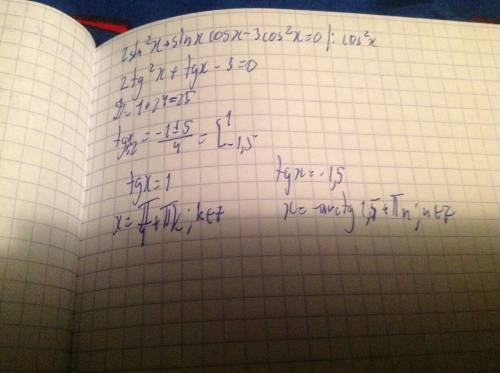 2sin²x+sinx cosx-3cos²x=0 |: cos²x
2tg²x+tgx-3=0
D=1+24=25
tgx₁,₂=(-1±5)/4=[1
-1,5
tgx=1 tgx=-1,5
x=π/4+πk; k∈Z x=-arctg1,5+πn; n∈Z